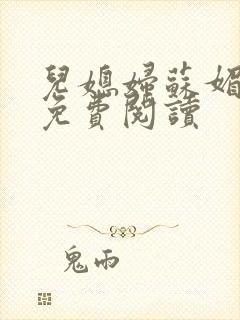 兒媳婦蘇媚
免費閱讀
鬼雨